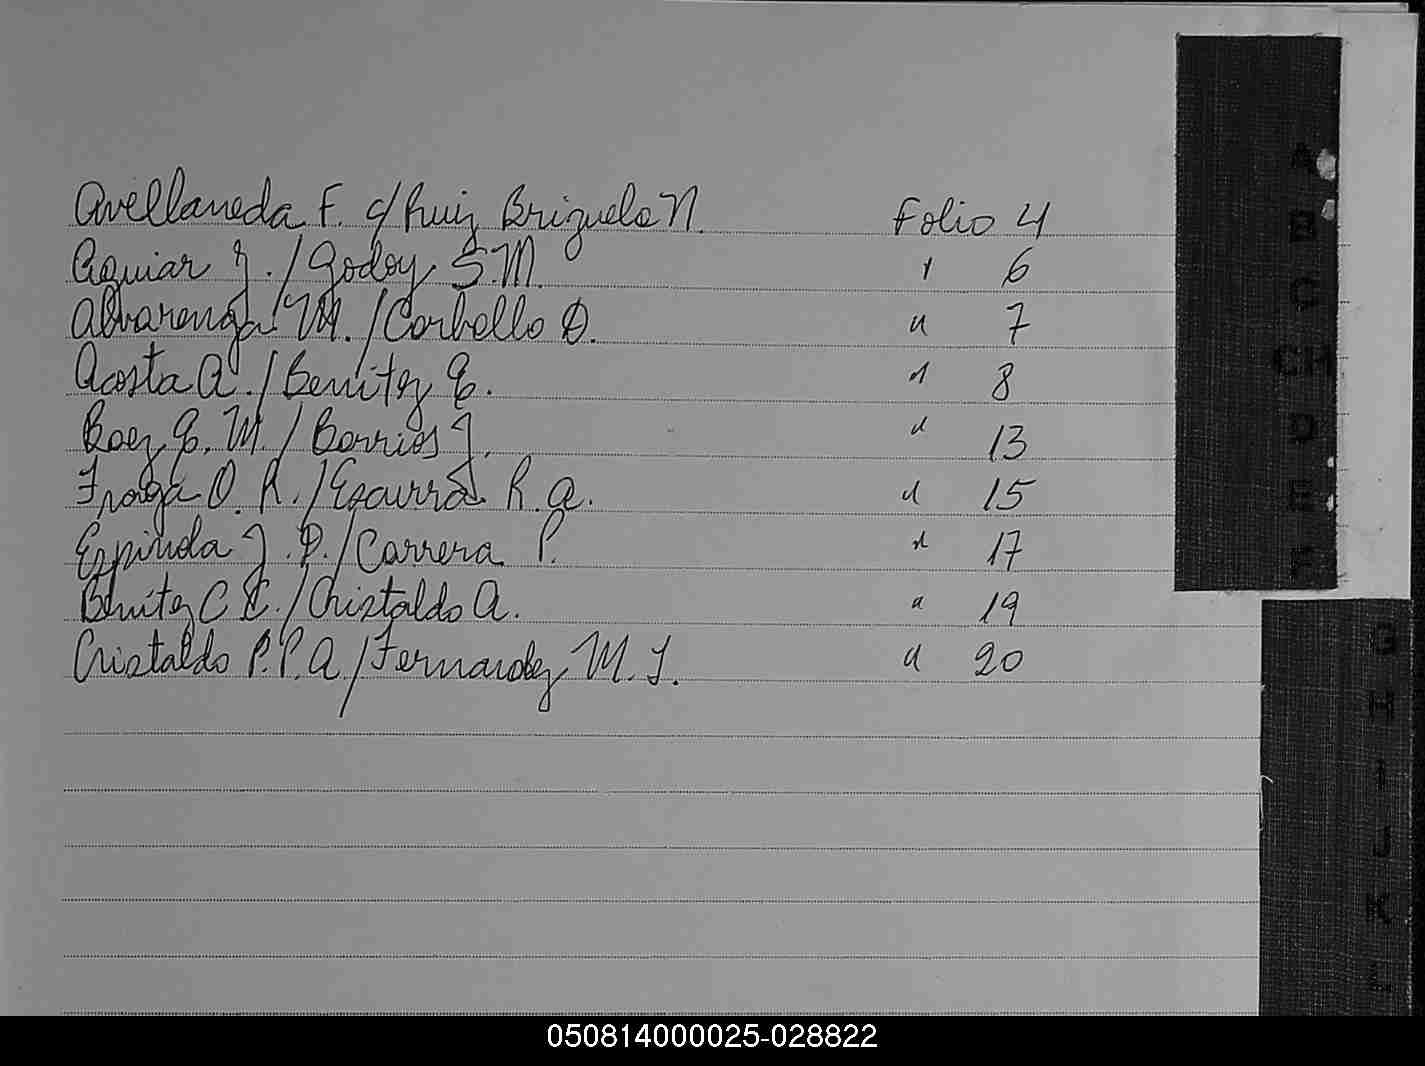 Avellaneda F. c/ Ruiz Brizuela N. Folio 4
Aguiar J. / Godoy S.M. " 6
Alvarenga M. / Carballo D. " 7
Acosta A. / Benitez E. " 8
Baez E. M. / Barrios J. " 13
Fraga O. R. / Esaurra R. A. " 15
Espindola J. D. / Carrera P. " 17
Benitez C E. / Cristaldo A. " 19
Cristaldo P. P. A / Fernandez M. J. " 20
A
B
C
CH
D
E
F
G
H
I
J
K
L
050814000025-028822